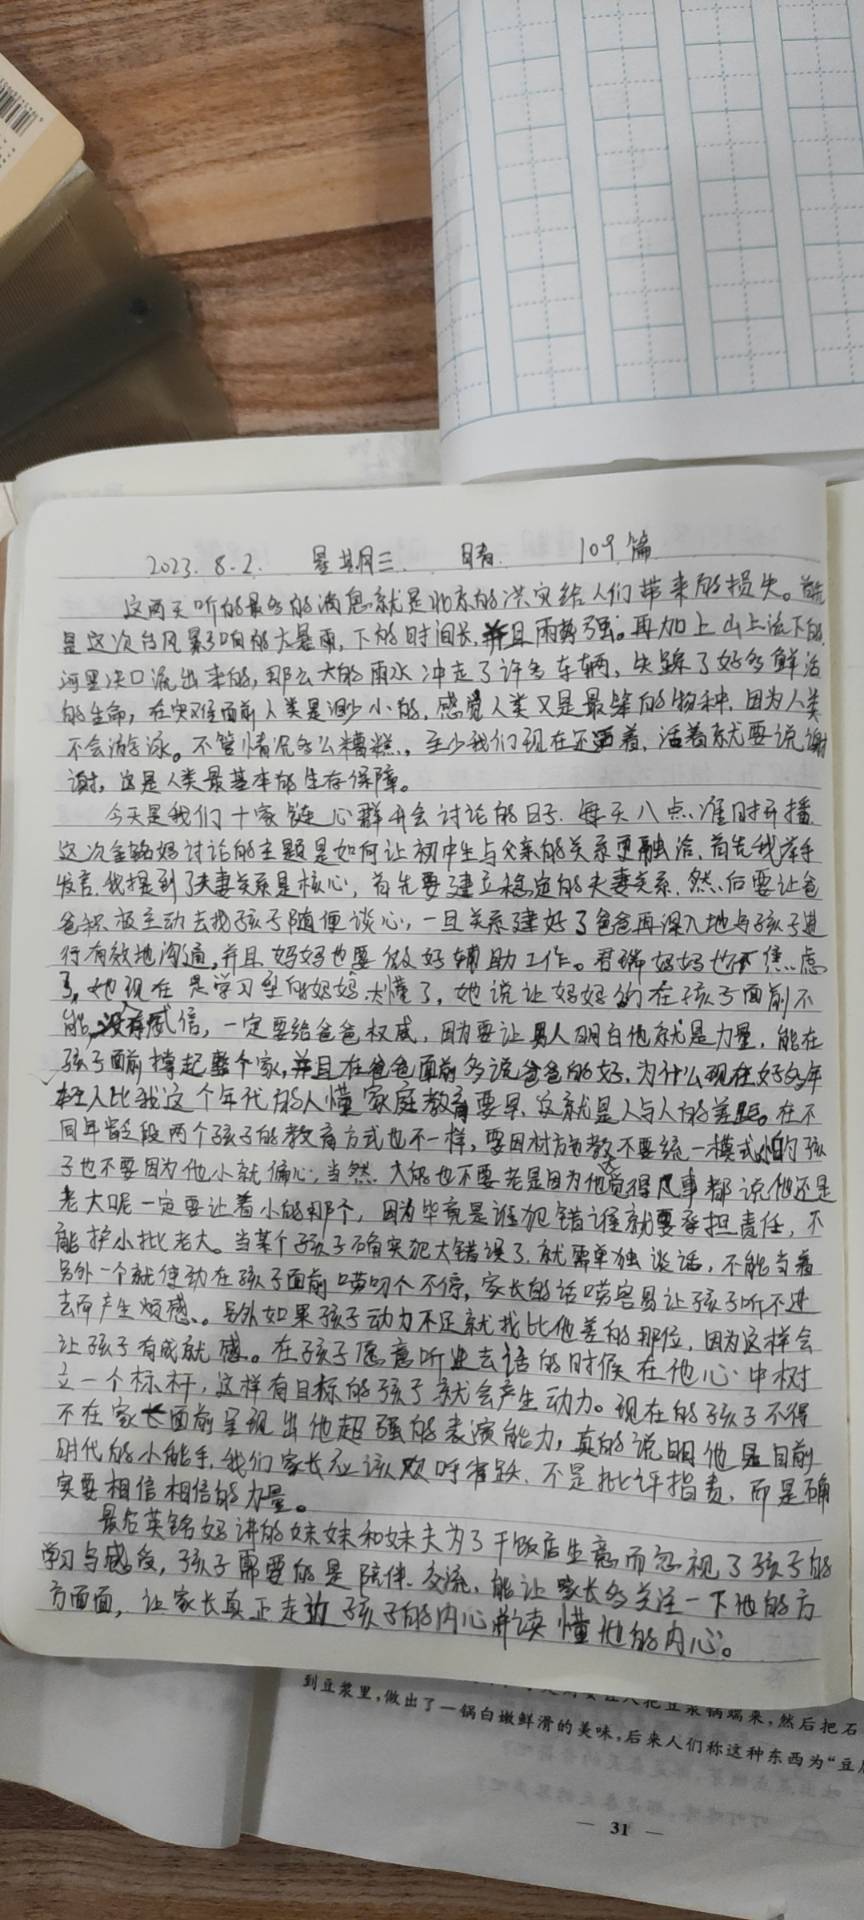 2023.8.2. 星期三 晴 109篇
这两天听的最多的消息就是北京的洪灾给人们带来的损失。首先
是这次台风影响的大暴雨，下的时间长，并且雨势强。再加上山上流下的，
河里决口流出来的，那么大的雨水冲走了许多车辆，失踪了好多鲜活
的生命，在灾难面前人类是渺小的，感觉人类又是最笨的物种，因为人类
不会游泳。不管情况多么糟糕，至少我们现在还活着，活着就要说谢
谢，这是人类最基本的生存保障。
今天是我们十家链心群开会讨论的日子，每天八点准时开播，
这次金铭妈讨论的主题是如何让初中生与父亲的关系更融洽，首先我举手
发言，我提到了夫妻关系是核心，首先要建立稳定的夫妻关系，然后要让爸
爸积极主动去找孩子随便谈心，一旦关系建好了爸爸再深入地与孩子进
行有效地沟通，并且妈妈也要做好辅助工作。君瑞妈妈也不焦虑
了，她现在是学习型的妈妈，太懂了，她说让妈妈的在孩子面前不
能没有威信，一定要给爸爸权威，因为要让男人明白他就是力量，能在
孩子面前撑起整个家，并且在爸爸面前多说爸爸的好，为什么现在好多年
轻人比我这个年代的人懂家庭教育要早，这就是人与人的差距。在不
同年龄段两个孩子的教育方式也不一样，要因材施教不要统一模式，小的孩
子也不要因为他小就偏心，当然，大的也不要老是因为他觉得凡事都说他还是
老大呢一定要让着小的那个，因为毕竟是谁犯错谁就要承担责任，不
能护小批老大。当某个孩子确实犯大错误了，就需单独谈话，不能当着
另外一个就使劲在孩子面前唠叨个不停，家长的话唠容易让孩子听不进
去而产生烦感。另外如果孩子动力不足就找比他差的那位，因为这样会
让孩子有成就感。在孩子愿意听进去话的时候在他心中树
立一个标杆，这样有目标的孩子就会产生动力。现在的孩子不得
不在家长面前呈现出他超强的表演能力，真的说明他是目前
时代的小能手，我们家长应该欢呼雀跃，不是批评指责，而是确
实要相信相信的力量。
最后英铭妈讲的妹妹和妹夫为了干饭店生意而忽视了孩子的
学习与感受，孩子需要的是陪伴、交流，能让家长多关注一下他的方
方面面，让家长真正走近孩子的内心并读懂他的内心。
到豆浆里，做出了一锅白嫩鲜滑的美味，后来人们称这种东西为“豆
— 31 —